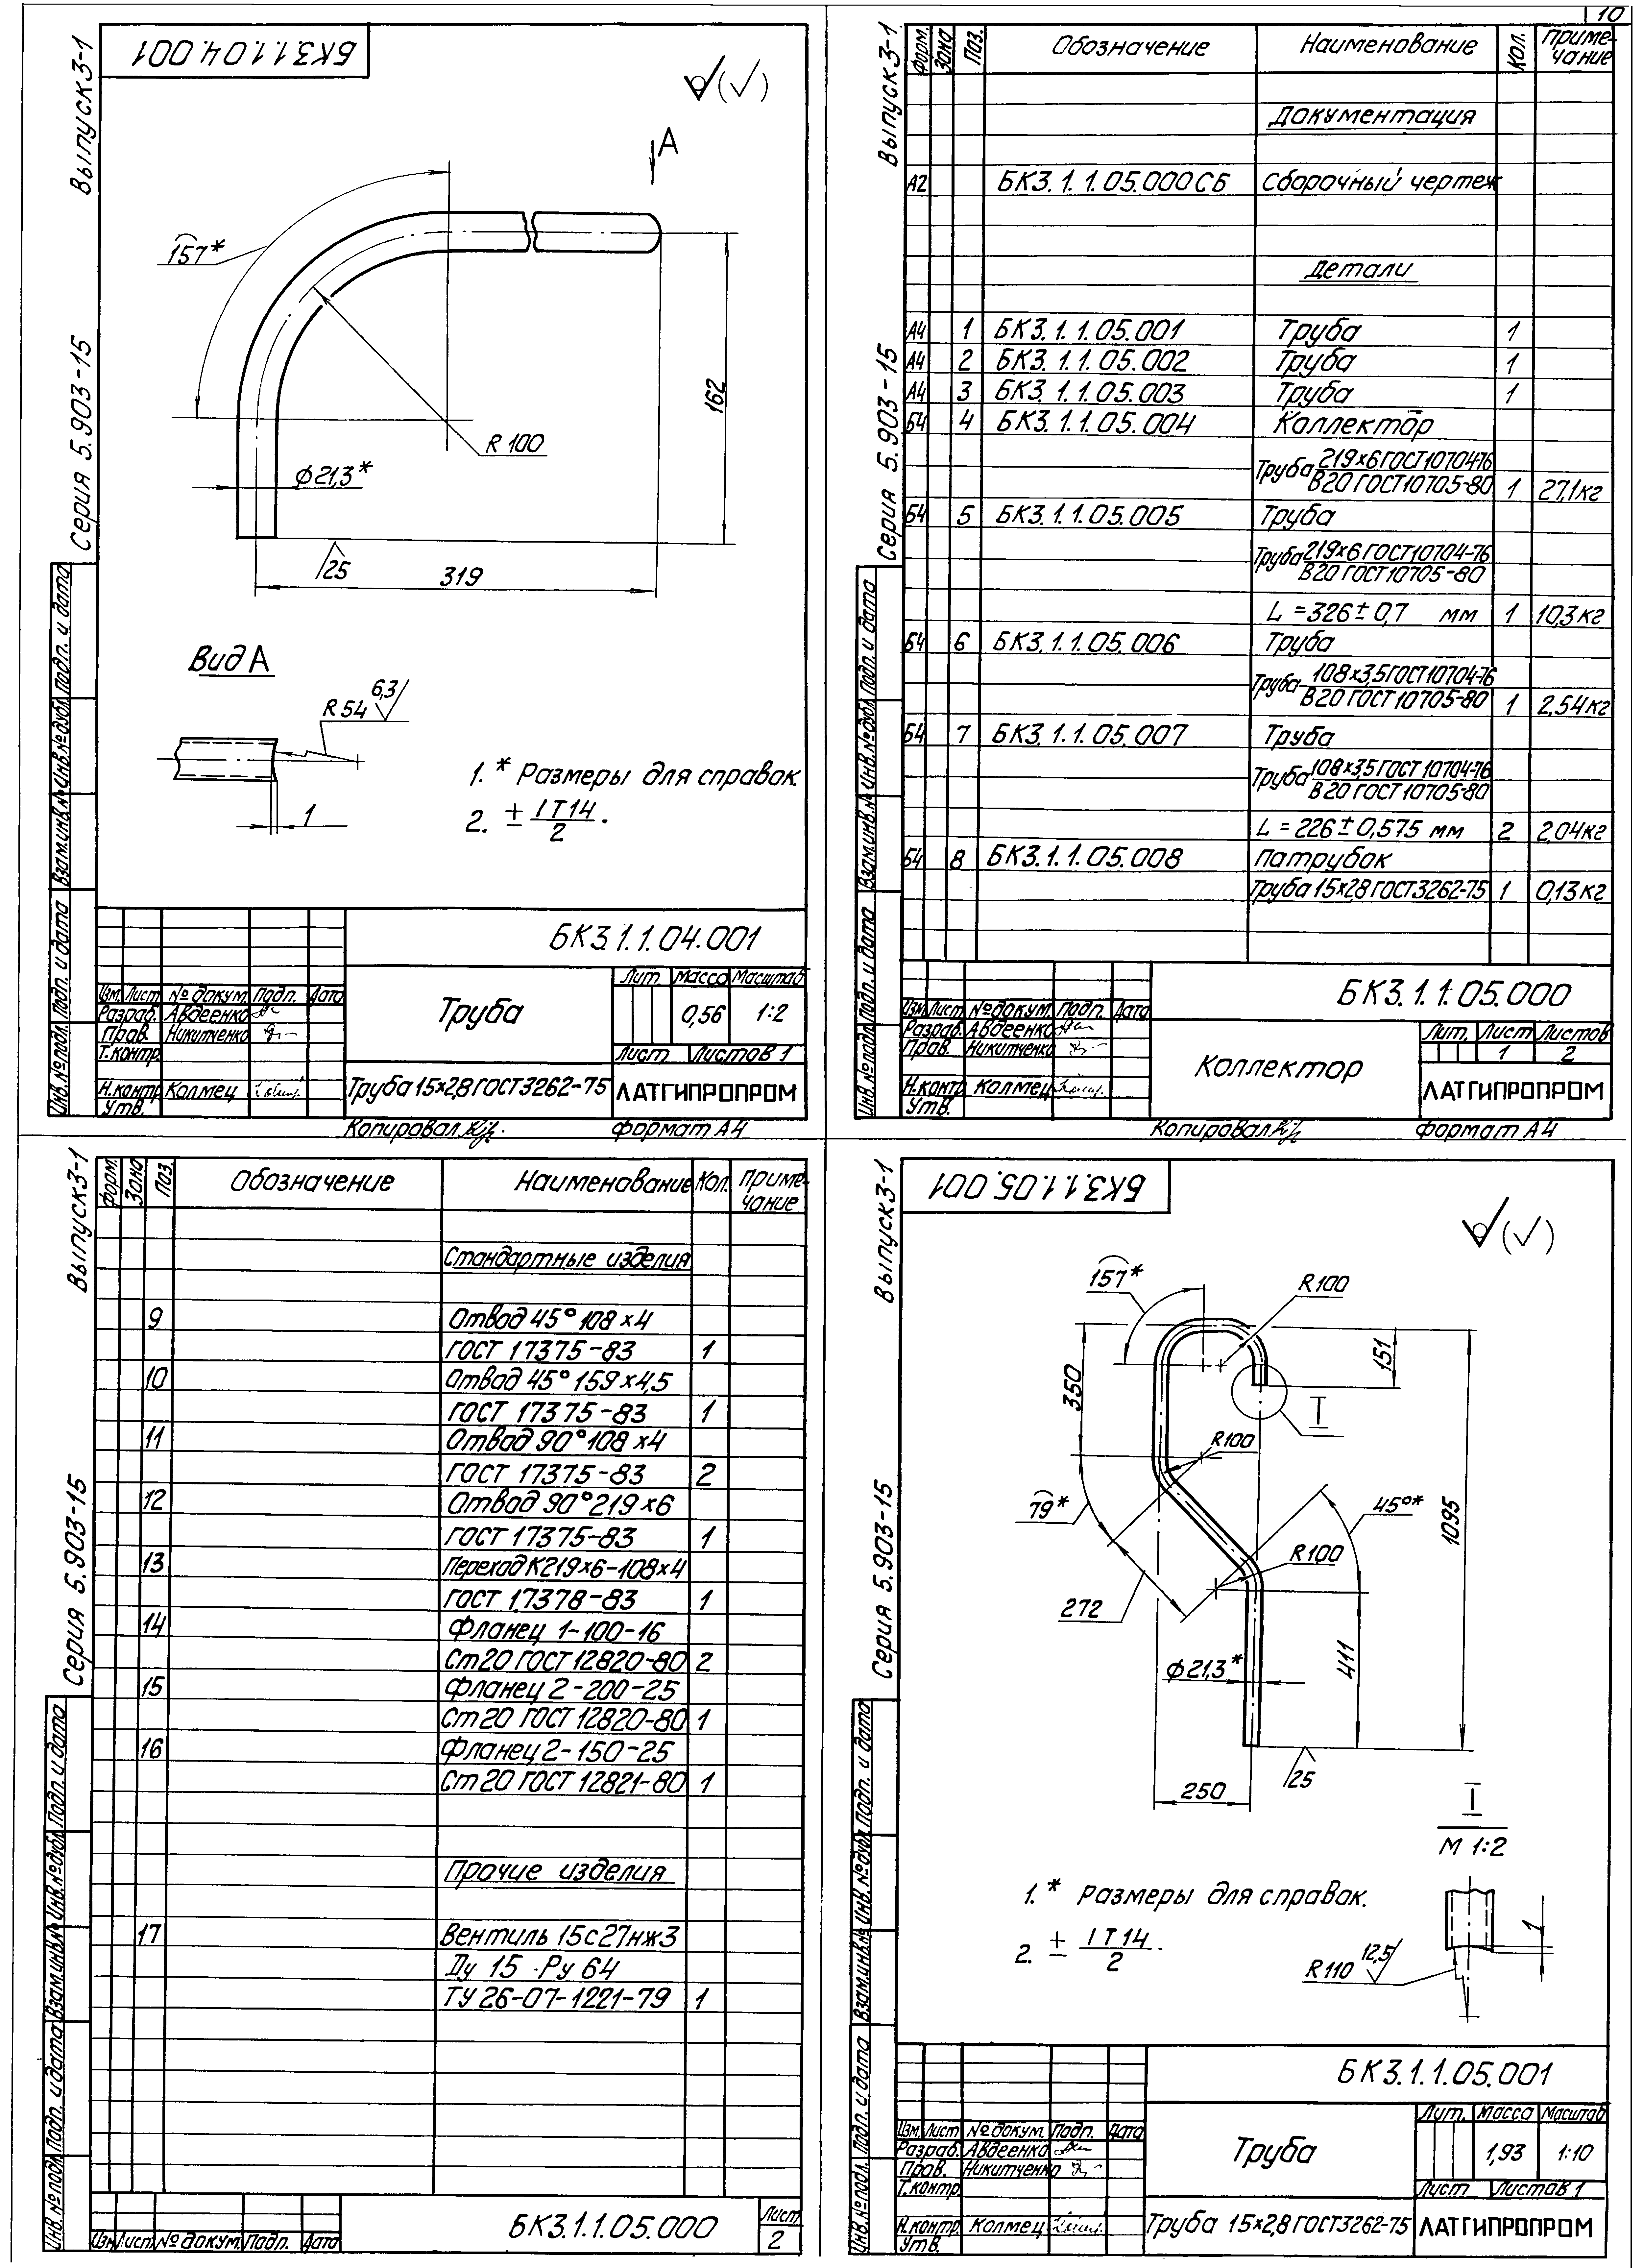 10
БК3.1.1.04.001
Выпуск 3-1
Серия 5.903-15
А
157*
R 100
162
Ф21,3*
25
319
Вид А
6,3
R 54
1
1. * Размеры для справок.
2. ± IT14
2 .
Инв.№подл.
Подп. и дата
Взам.инв.№
Инв.№дубл.
Подп. и дата
БК3.1.1.04.001
Лит. Масса Масштаб
Изм. Лист № докум. Подп. Дата
Разраб. Авдеенко
Труба
0,56
1:2
Пров. Никитченко
Т.контр.
Лист Листов 1
Н.контр. Колмец
Труба 15×2,8 ГОСТ 3262-75
ЛАТГИПРОПРОМ
Утв.
Копировал
Формат А4
Выпуск 3-1
Серия 5.903-15
Форм. Зона Поз. Обозначение Наименование Кол. Приме-
чание
Документация
А2 БК3.1.1.05.000СБ Сборочный чертеж
Детали
А4 1 БК3.1.1.05.001 Труба 1
А4 2 БК3.1.1.05.002 Труба 1
А4 3 БК3.1.1.05.003 Труба 1
Б4 4 БК3.1.1.05.004 Коллектор
Труба 219×6 ГОСТ 10704-76
В20 ГОСТ 10705-80 1 27,1кг
Б4 5 БК3.1.1.05.005 Труба
Труба 219×6 ГОСТ 10704-76
В20 ГОСТ 10705-80
L = 326 ± 0,7 мм 1 10,3кг
Б4 6 БК3.1.1.05.006 Труба
Труба 108×3,5 ГОСТ 10704-76
В20 ГОСТ 10705-80 1 2,54кг
Б4 7 БК3.1.1.05.007 Труба
Труба 108×3,5 ГОСТ 10704-76
В20 ГОСТ 10705-80
L = 226 ± 0,575 мм 2 2,04кг
Б4 8 БК3.1.1.05.008 Патрубок
Труба 15×2,8 ГОСТ 3262-75 1 0,13кг
Инв.№подл.
Подп. и дата
Взам.инв.№
Инв.№дубл.
Подп. и дата
БК3.1.1.05.000
Изм. Лист № докум. Подп. Дата
Разраб. Авдеенко
Лит. Лист Листов
Пров. Никитченко
Коллектор
1 2
Н.контр. Колмец
ЛАТГИПРОПРОМ
Утв.
Копировал
Формат А4
Выпуск 3-1
Серия 5.903-15
Форм. Зона Поз. Обозначение Наименование Кол. Приме-
чание
Стандартные изделия
9 Отвод 45° 108×4
ГОСТ 17375-83 1
10 Отвод 45° 159×4,5
ГОСТ 17375-83 1
11 Отвод 90° 108×4
ГОСТ 17375-83 2
12 Отвод 90° 219×6
ГОСТ 17375-83 1
13 Переход К219×6-108×4
ГОСТ 17378-83 1
14 Фланец 1-100-16
Ст20 ГОСТ 12820-80 2
15 Фланец 2-200-25
Ст20 ГОСТ 12820-80 1
16 Фланец 2-150-25
Ст20 ГОСТ 12821-80 1
Прочие изделия
17 Вентиль 15с27нж3
Ду 15 Ру 64
ТУ 26-07-1221-79 1
Инв.№подл.
Подп. и дата
Взам.инв.№
Инв.№дубл.
Подп. и дата
БК3.1.1.05.000
Лист
2
Изм. Лист № докум. Подп. Дата
БК3.1.1.05.001
Выпуск 3-1
Серия 5.903-15
157*
R100
151
350
I
R100
79*
45°*
1095
R100
272
411
Ф21,3*
25
250
I
М 1:2
1. * Размеры для справок.
2. ± IT14
2
1
12,5
R110
Инв.№подл.
Подп. и дата
Взам.инв.№
Инв.№дубл.
Подп. и дата
БК3.1.1.05.001
Лит. Масса Масштаб
Изм. Лист № докум. Подп. Дата
Разраб. Авдеенко
Труба
1,93
1:10
Пров. Никитченко
Т.контр.
Лист Листов 1
Н.контр. Колмец
Труба 15×2,8 ГОСТ 3262-75
ЛАТГИПРОПРОМ
Утв.